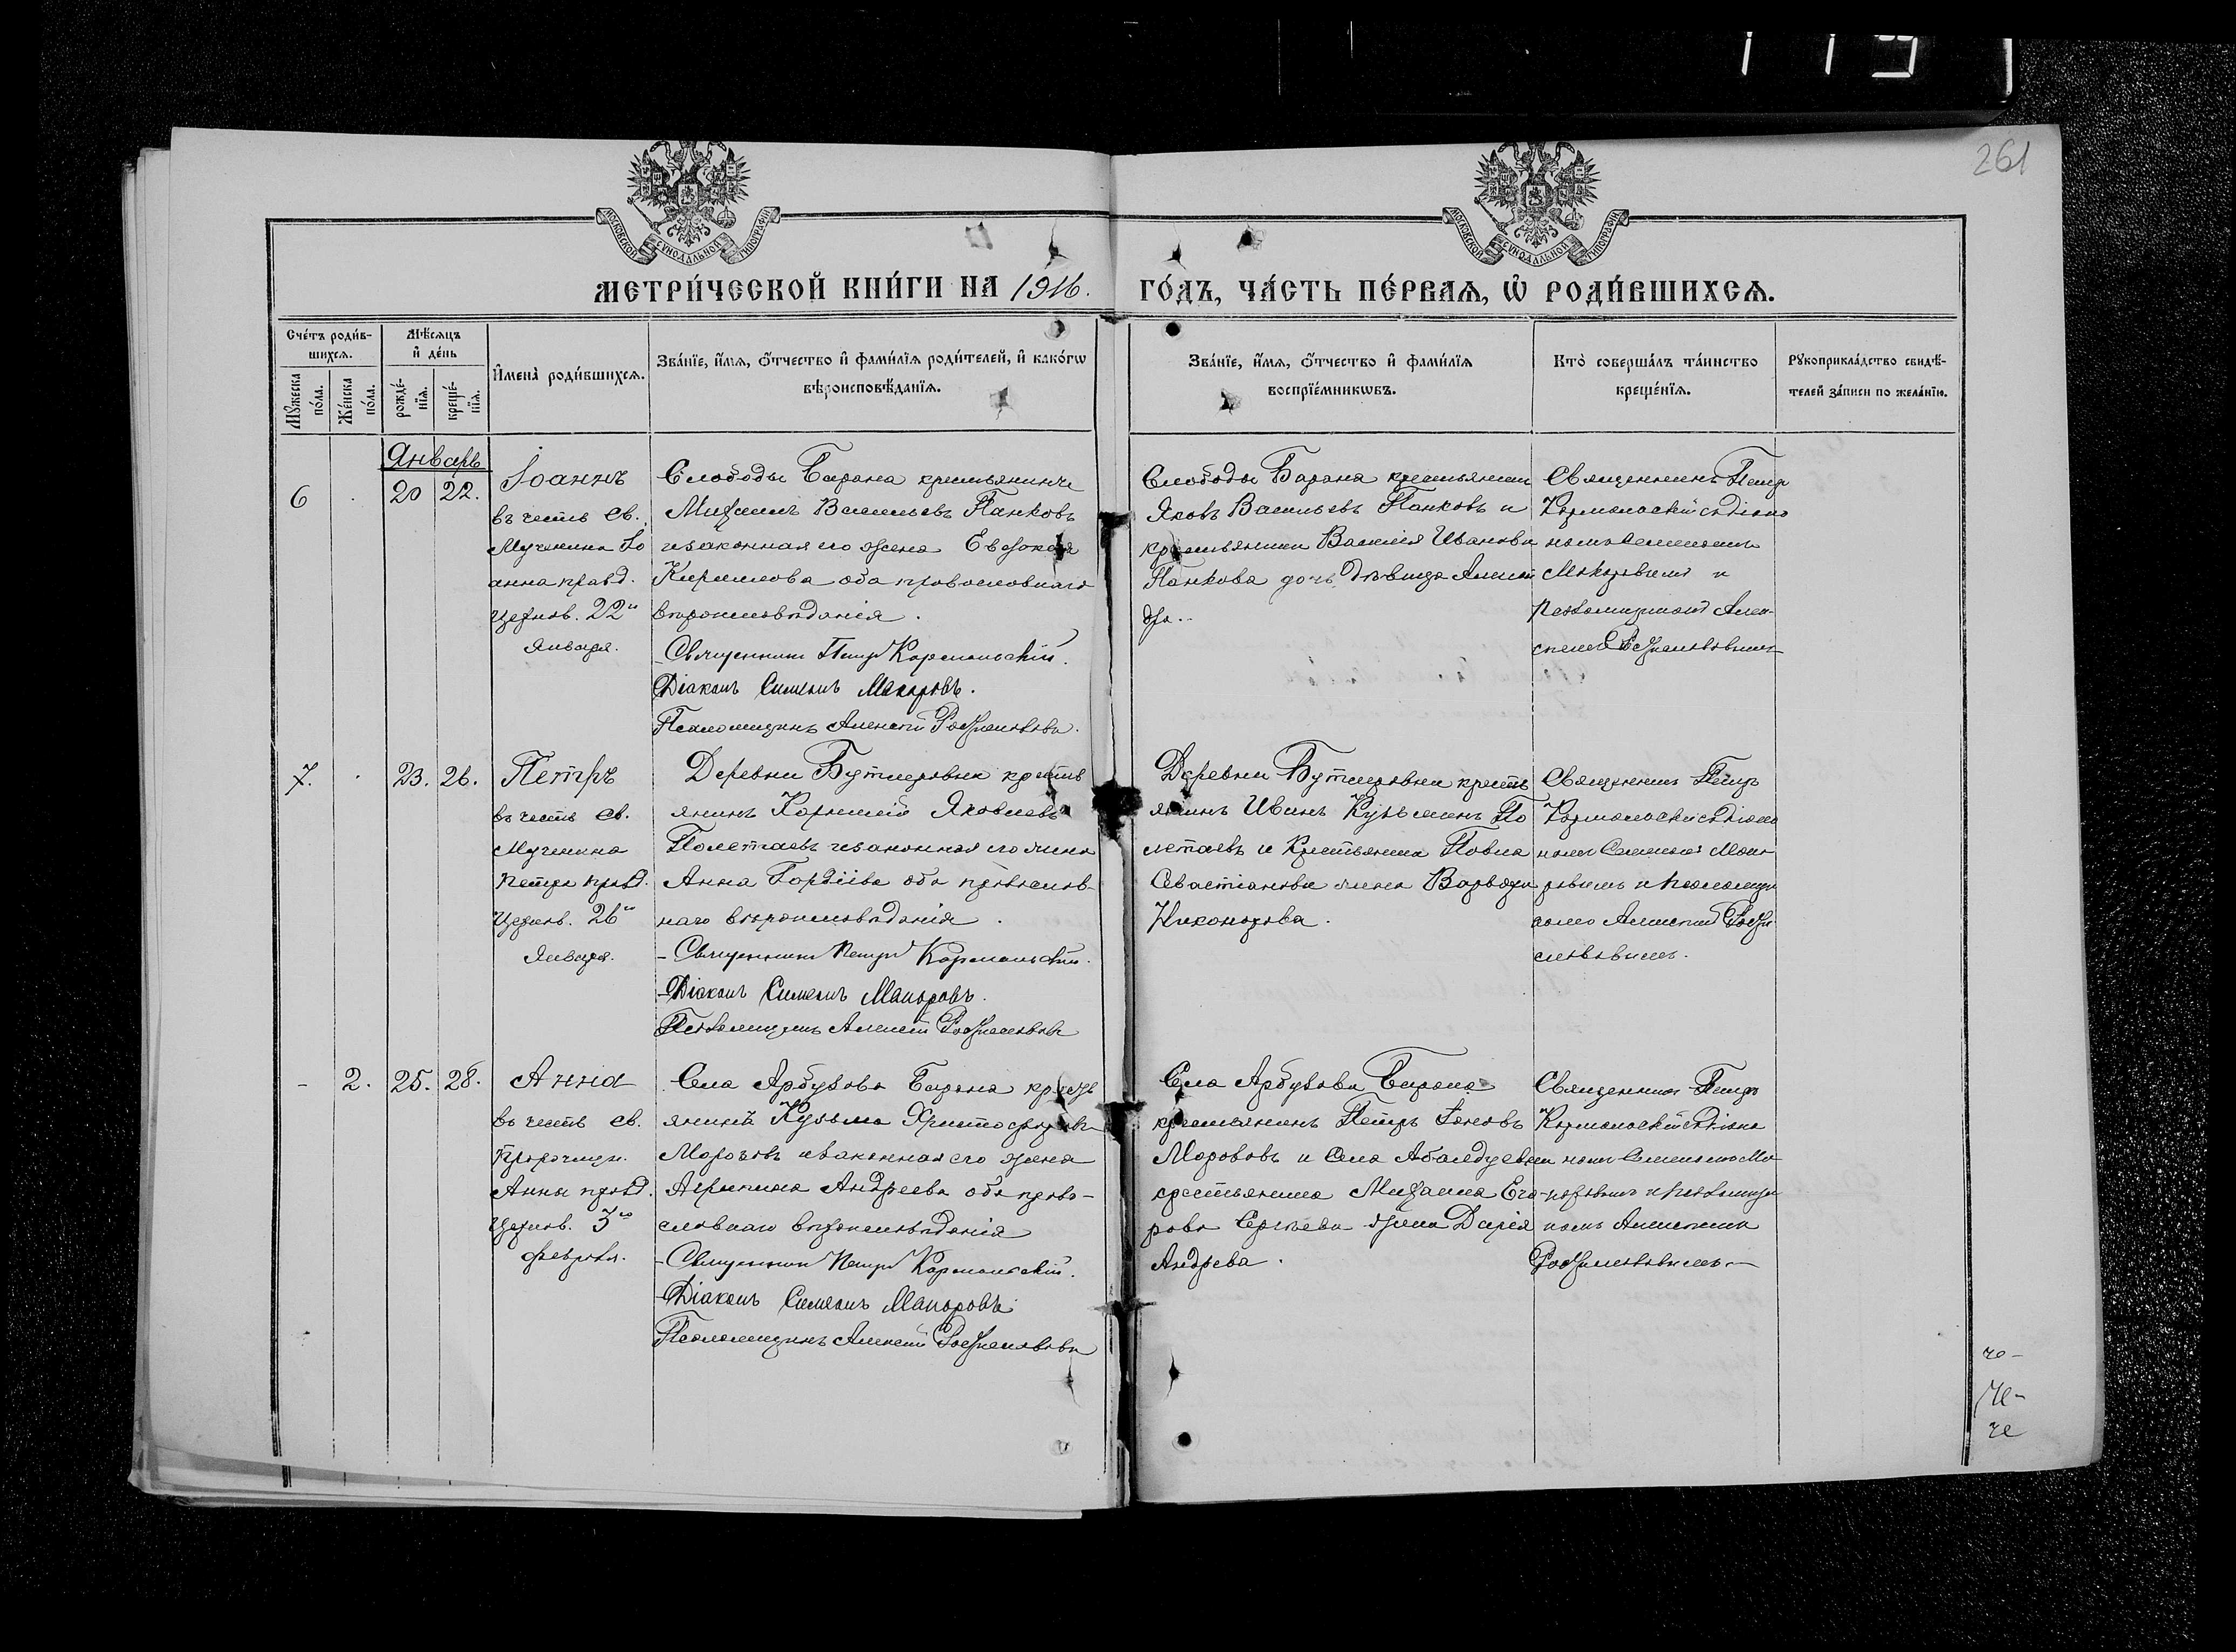 261
МОСКОВСКОЙ СѴНОДАЛЬНОЙ ТИПОГРАФІИ
МОСКОВСКОЙ СѴНОДАЛЬНОЙ ТИПОГРАФІИ
МЕТРИ́ЧЕСКОЙ КНИ́ГИ НА 1916. ГО́ДЪ, ЧА́СТЬ ПЕ́РВАѦ, Ѡ҆ РОДИ́ВШИХСѦ.
Сче́тъ роди́в-
шихсѧ.
Мꙋ́жеска по́ла.
Же́нска по́ла.
Мѣ́сѧцъ
и҆ де́нь
рожде́-
нїѧ.
креще́-
нїѧ.
И҆мена̀ роди́вшихсѧ.
Зва́нїе, и҆́мѧ, ѻ҆́тчество и҆ фами́лїѧ роди́телей, и҆ како́гѡ
вѣроисповѣ́данїѧ.
Зва́нїе, и҆́мѧ, ѻ҆́тчество и҆ фами́лїѧ
воспрїе́мникѡвъ.
Кто̀ соверша́лъ та́инство
креще́нїѧ.
Рꙋкоприкла́дство свидѣ́-
телей за́писи по жела́нїю.
Январь
6
20
22.
Іоаннъ
въ честь св.
Мученика Іо
анна празд.
церков. 22го
Января.
Слободы Барана крестьянинъ
Михаилъ Васильевъ Панковъ
и законная его жена Евдокія
Кириллова оба православнаго
вѣроисповѣданія.
Священникъ Петръ Кармальскій.
Діаконъ Симеонъ Макаровъ.
Псаломщикъ Алексѣй
Слободы Барана крестьянинъ
Яковъ Васильевъ Панковъ и
крестьянина Василія Иванова
Панкова дочь дѣвица
Священникъ Петръ
Кармальскій съ діако
номъ Симеономъ
Макаровымъ и
псаломщикомъ Алек-
7.
23.
26.
Петръ
въ честь св.
Мученика
Петра празд.
Церков. 26го
Января.
Деревни Бутыровки кресть
янинъ Корнилій Яковлевъ
Полетаевъ и законная его жена
Анна Гордіева оба православ-
наго вѣроисповѣданія.
Священникъ Петръ Кармальскій.
Діаконъ Симеонъ Макаровъ.
Псаломщикъ Алексѣй
Деревни Бутыровки кресть
янинъ Иванъ Кузьминъ По
летаевъ и крестьянина Павла
Севастіанова жена Варвара
Никонорова.
Священникъ Петръ
Кармальскій съ діако
номъ Симеономъ Мака
ровымъ и псаломщи
комъ Алексѣемъ
2.
25.
28.
Анна
въ честь св.
Пророчицы
Анны празд.
Церков. 3го
февраля.
Села Арбузова Барана кресть
янинъ Кузьма Христофоровъ
Морозовъ и законная его жена
Агрипина Андреева оба право-
славнаго вѣроисповѣданія
Священникъ Петръ Кармальскій.
Діаконъ Симеонъ Макаровъ.
Псаломщикъ Алексѣй
Села Арбузова Барана
крестьянинъ Петръ
Морозовъ и села
крестьянина Михаила Его-
рова Сергѣева жена Дарія
Андреева.
Священникъ Петръ
Кармальскій съ діако
номъ Симеономъ Ма-
каровымъ и псаломщи
комъ Алексѣемъ